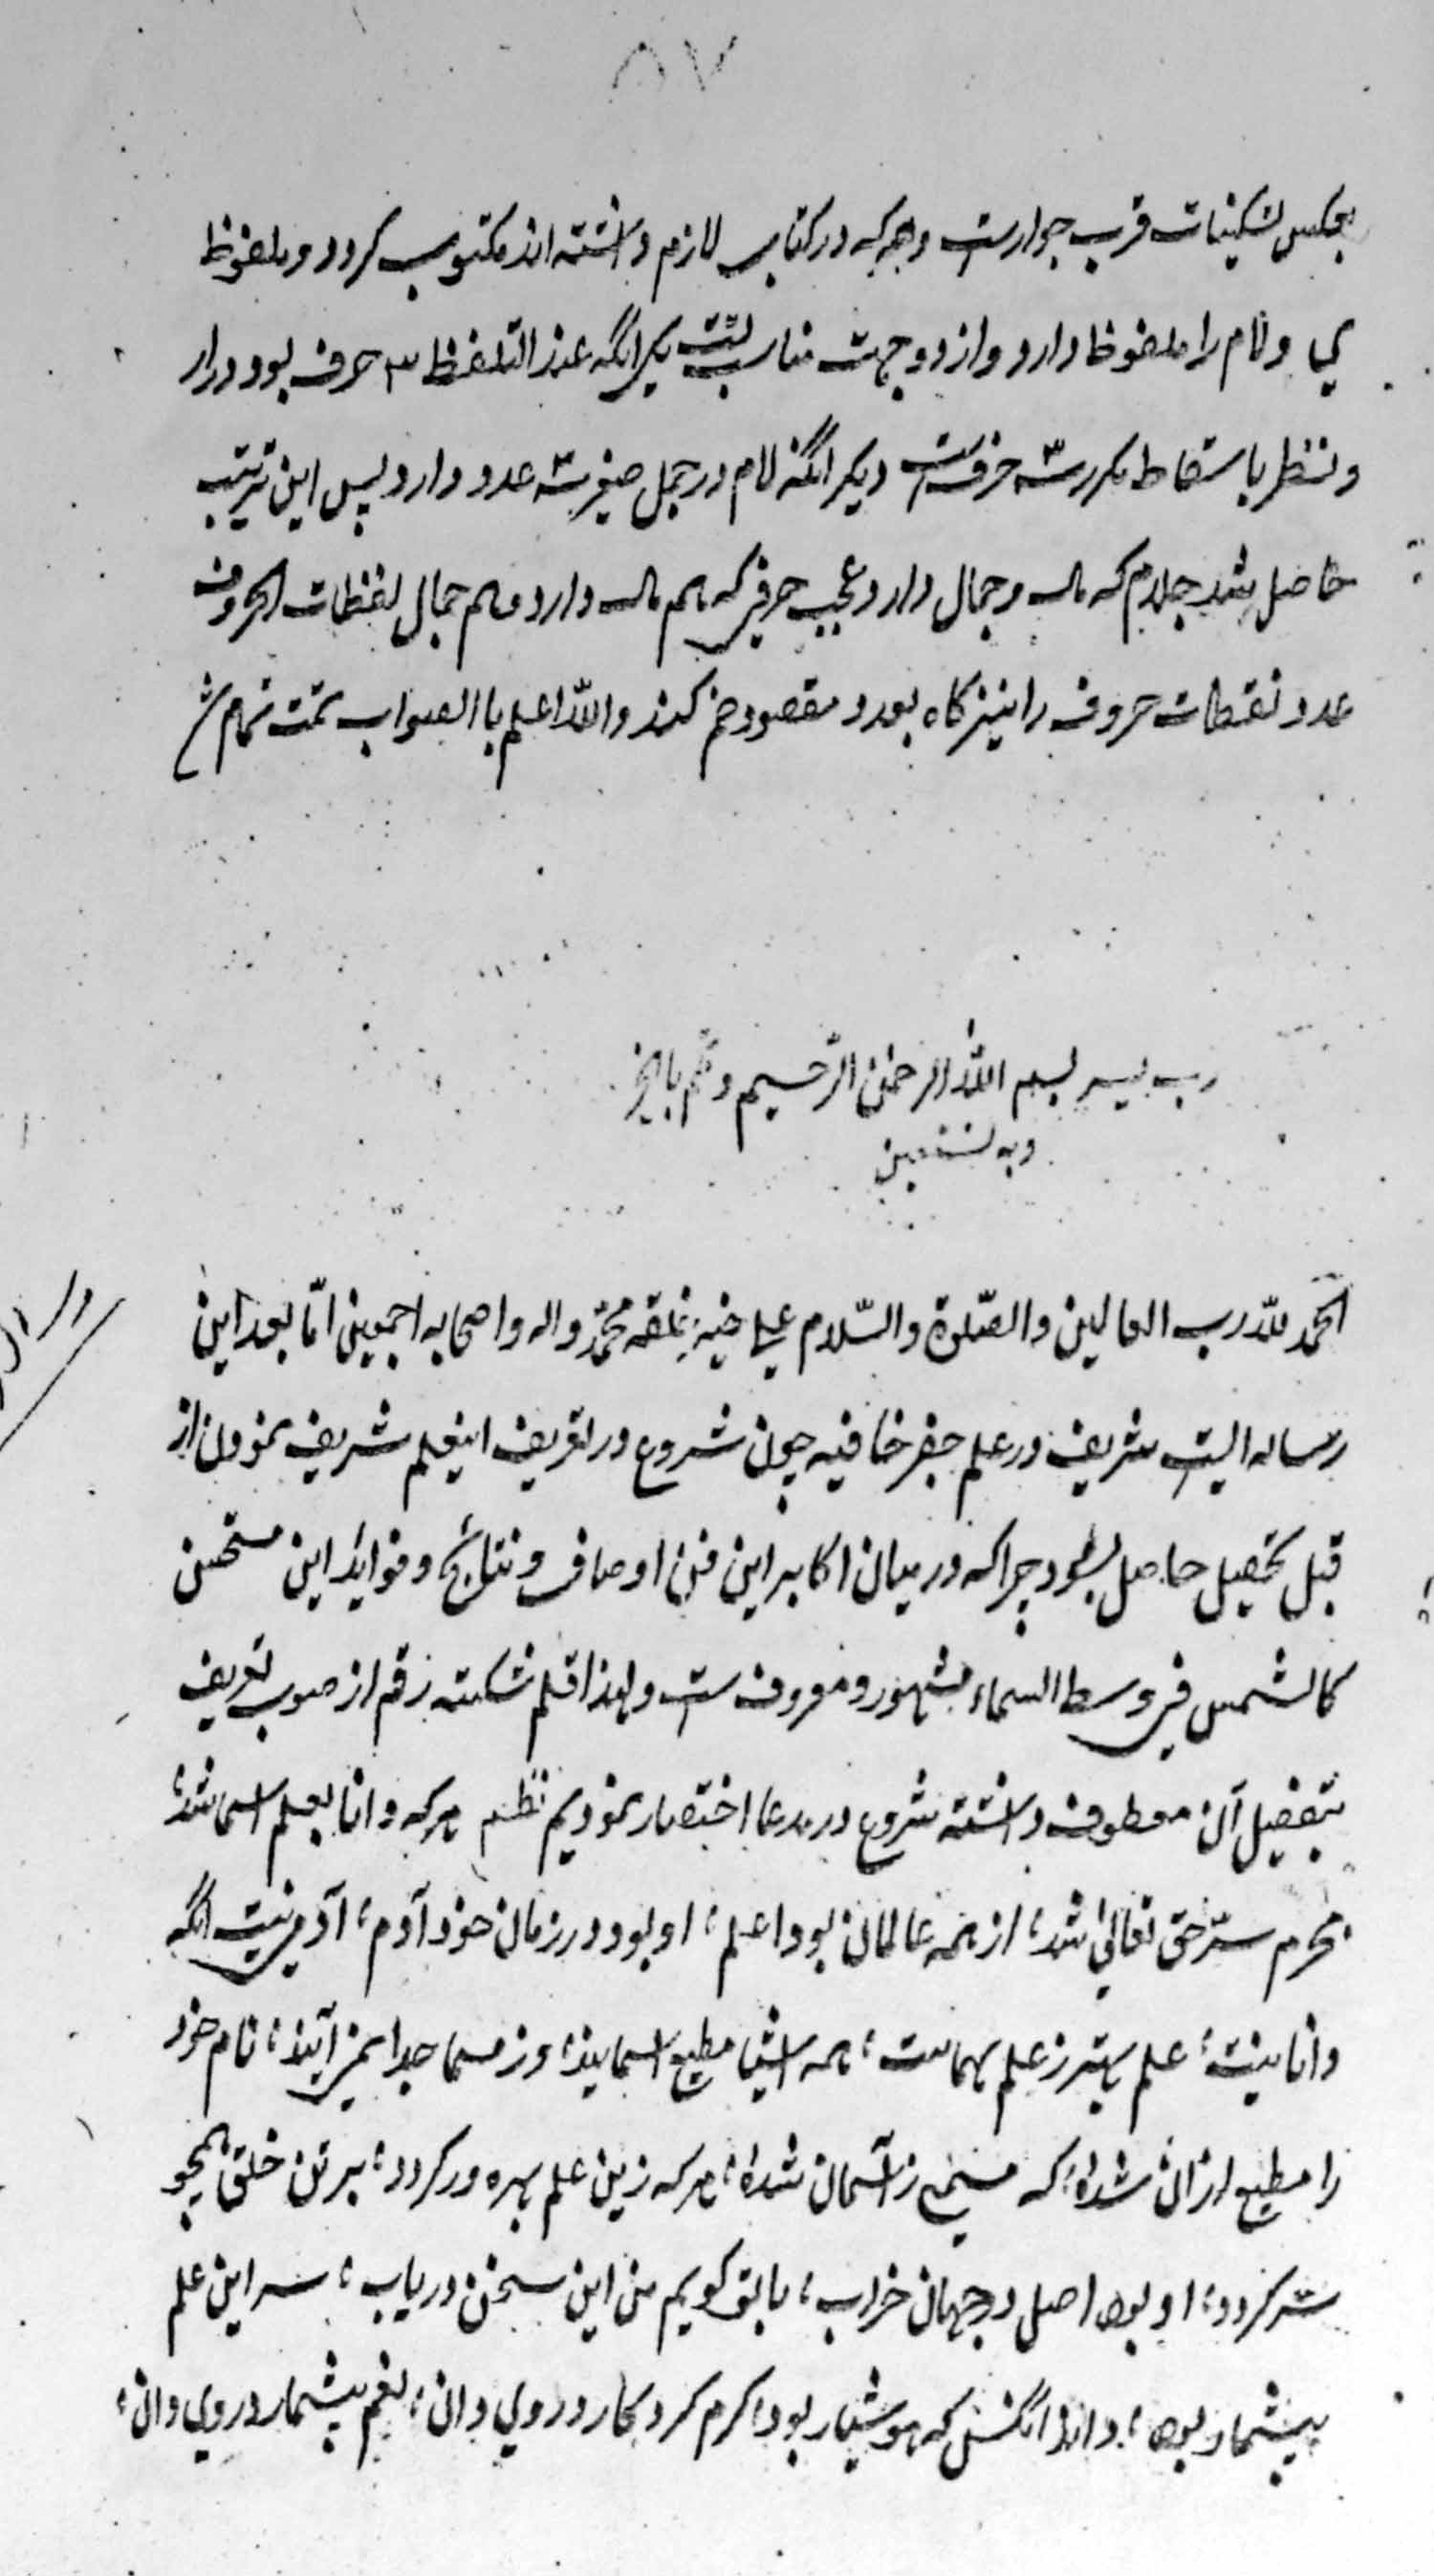 ۸۷
بعکس تسکینات قریب جوارست و هر که در کتاب لازم داشته اند مکتوب کردد و ملفوظ
ی و لام را ملفوظ دارد و از دو جهت مناسبتست یکی انکه عند التلفظ ۳ حرف بود دارد
و نظر باسقاط مکرر سه حرفست دیکر انکه لام در جمل صغیر سه عدد دارد پس این ترتیب
حاصل شد جلام که مال و جمال دارد عجب حرفی که هم مال دارد و هم جمال لفظات الحروف
عدد نقطات حروف را نیز کاه بعدد مقصود ضم کنند والله اعلم باالصواب تمت تمام
رب یسر بسم الله الرحمن الرحیم و تمم بالخیر
وبه نستعین
الحمد لله رب العالمین والصلوة والسلام علی خیر خلقه محمد واله واصحابه اجمعین اما بعد این
رساله ایست شریف در علم جفر خافیه چون شروع در تعریف اینعلم شریف نمودن از
قبل تحصیل حاصل بشود چرا که در میان اکابر این فن اوصاف و نتایج و فواید این مستحسن
کالشمس فی وسط السماء مشهور و معروف ست و لهذا قلم شکسته رقم از صوب تعریف
بتفضیل آن معطوف داشته شروع در مدعا اختصار نمودیم نظم هر که دانا بعلم اسما شد؛
محرم سر حق تعالی شد؛ از همه عالمان بود اعلم؛ او بود در زمان خود آدم؛ آدمی نیست انکه
دانا نیست؛ علم بهتر ز علم بهمانست؛ همه اشیا مطیع اسمایند؛ وز مسما جدا نمی آیند؛ نام خود
را مطیع ازان شداه؛ که مسیح ز آسمان شداه؛ هر که زین علم بهره ور کردد؛ بر تن خلق همچو
سر کردد؛ او بود اصل و جهان خراب؛ با تو کویم من این سخن دریاب؛ سر این علم
بیشمار بود؛ داند انکس که هوشیار بود؛ کرم کرد کار در وی دان؛ نغم بیشمار در وی دان؛